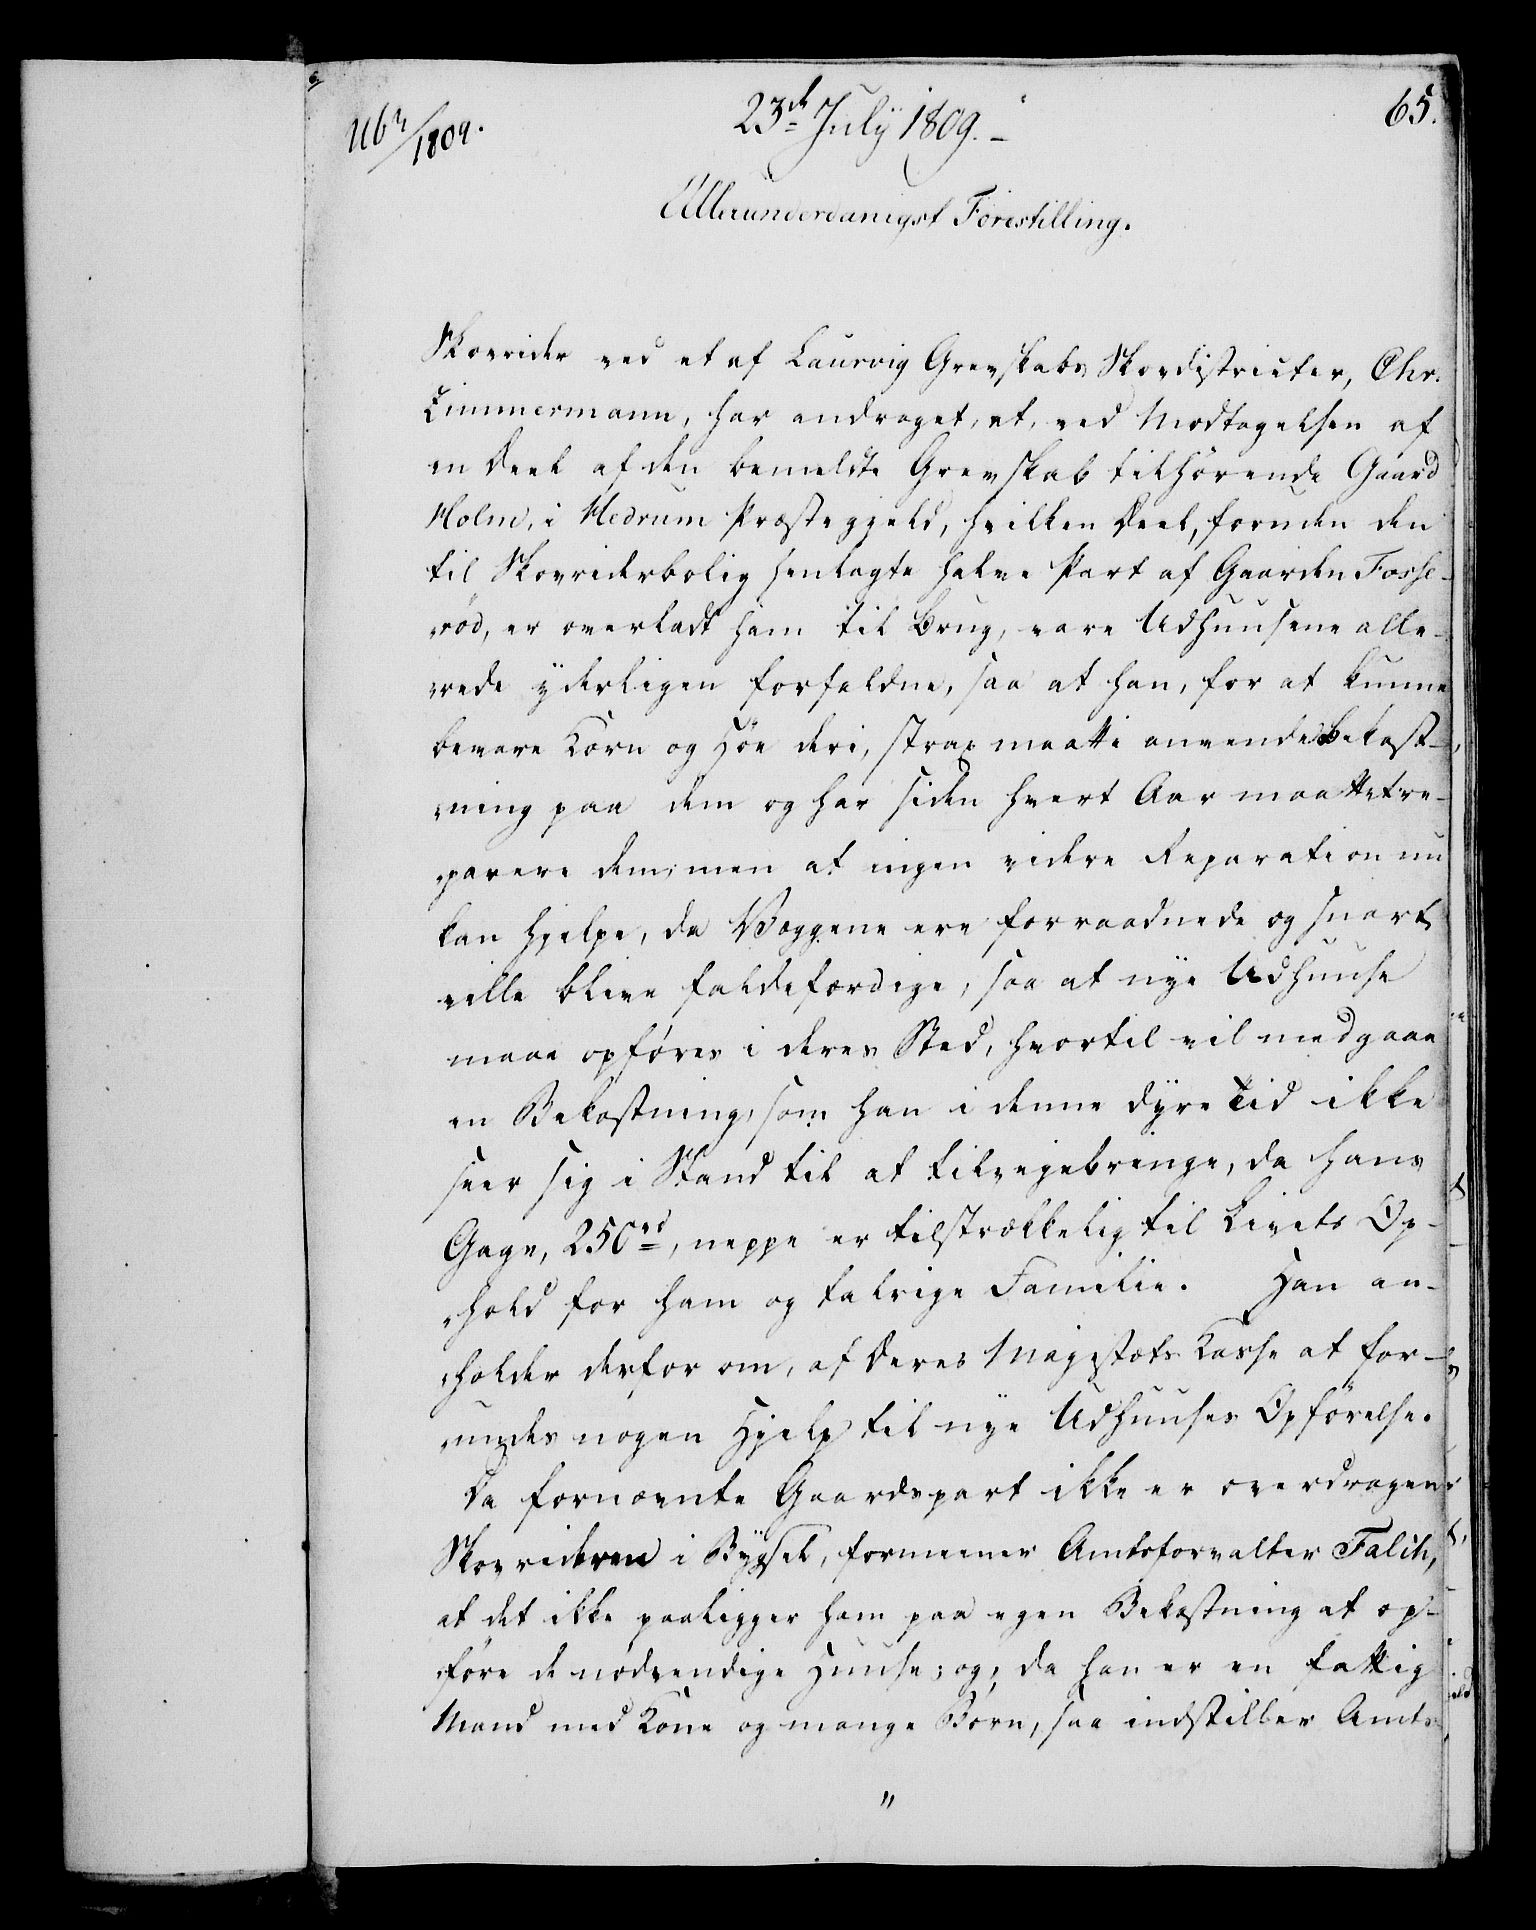 1162/1809.
23de July 1809.-
65.
Allerunderdanigst Forestilling.
Skovrider ved et af Laurvig Grevskabs Skovdistricter, Chr.
Zimmermann, har andraget, at, ved Modtagelsen af
en Deel af den bemeldte Grevskab tilhørende Gaard
Holm, i Hedrum Præstegjeld, hvilken Deel, foruden den
til Skovriderbolig henlagte halve Part af Gaarden Fosse-
rød, er overladt ham til Brug, vare Udhuusene alle-
rede yderligen forfaldne, saa at han, for at kunne
bevare Korn og Høe deri, strax maatte anvende Bekost-
ning paa dem og har siden hvert Aar maattet re-
parere dem; men at ingen videre Reparation nu
kan hjelpe, da Væggene ere forraadnede og snart
ville blive faldefærdige, saa at nye Udhuuse
maae opføres i deres Sted, hvortil vil medgaae
en Bekostning, som han i denne dyre Tid ikke
seer sig i Stand til at tilvejebringe, da hans
Gage, 250 rd, neppe er tilstrækkelig til Livets Op-
hold for ham og talrige Familie. Han an-
holder derfor om, af Deres Majestæts Kasse at for-
undes nogen Hjelp til nye Udhuuses Opførelse.
Da fornævnte Gaardspart ikke er overdragen
Skovrideren i Bygsel, formeener Amtsforvalter Falch,
at det ikke paaligger ham paa egen Bekostning at op-
føre de nødvendige Huuse; og, da han er en fattig
Mand med Kone og mange Børn, saa indstiller Amts
"